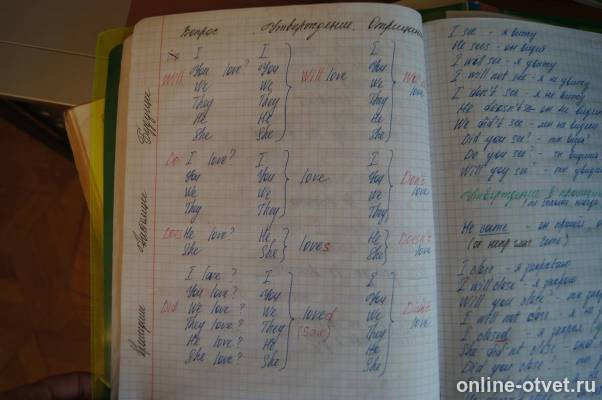 Вопрос Утверждение Отрицание
Будущее
I I I
You love? You You
Will We We Will love We love
They They They
He He He
She She She
Настоящее
Do I love? I I
You You love You Don't
We We We love
They They They
Does He love? He loves He Doesn't
She She She love
I love? I I
You love? You You
Did We love? We loved We Didn't
They love? They (saw) They love
He love? He He
She love? She She
I see - я вижу
He sees - он видит
I will see - я увижу
I will not see - я не увижу
I don't see - я не вижу
He doesn't - он не
We did't see - мы не видели
Did you see? - ты
Do you see? - ты
Will you see? - ты
Утверждение в
He came - он
I close - я закрываю
I will close - я закрою
Will you close? - ты
I will not close - я не
I closed - я закрыл
She did not close
Did you close?
online-otvet.ru